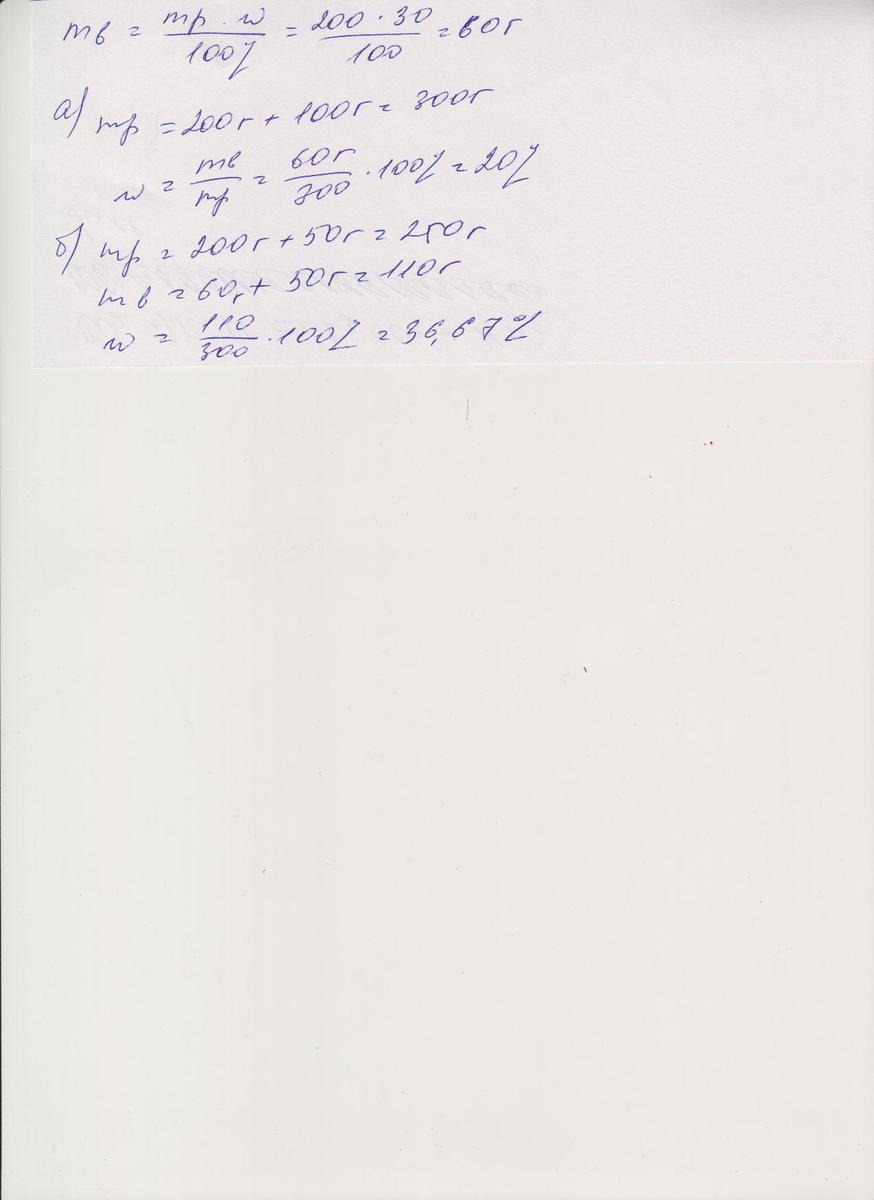 mв = mр · w / 100% = 200 · 30 / 100 = 60г
а) mр = 200г + 100г = 300г
w = mв / mр = 60г / 300 · 100% = 20%
б) mр = 200г + 50г = 250г
mв = 60г + 50г = 110г
w = 110 / 300 · 100% = 36,67%